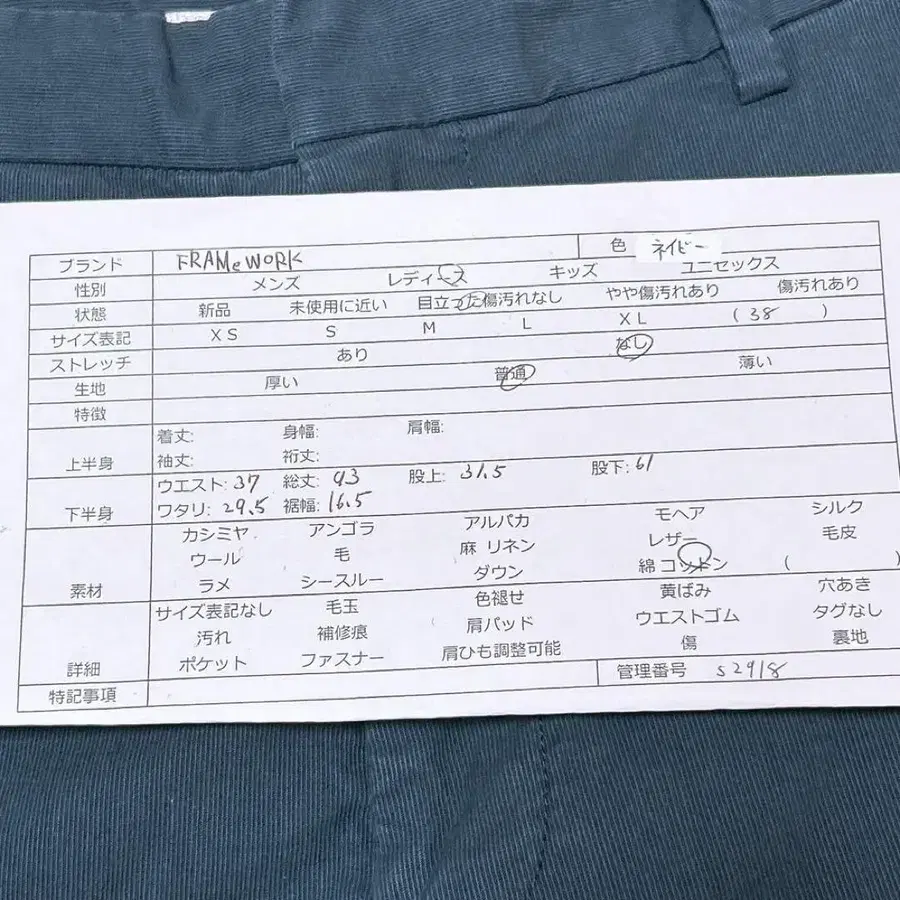 ブランド FRAMeWORK 色 ネイビー
性別 メンズ レディース キッズ ユニセックス
状態 新品 未使用に近い 目立った傷汚れなし やや傷汚れあり 傷汚れあり
サイズ表記 XS S M L XL ( 38 )
ストレッチ あり なし
生地 厚い 普通 薄い
特徴
上半身 着丈: 身幅: 肩幅:
袖丈: 裄丈:
下半身 ウエスト: 37 総丈: 93 股上: 31.5 股下: 61
ワタリ: 29.5 裾幅: 16.5
素材 カシミヤ アンゴラ アルパカ モヘア シルク
ウール 毛 麻 リネン レザー 毛皮
ラメ シースルー ダウン 綿 コットン ( )
詳細 サイズ表記なし 毛玉 色褪せ 黄ばみ 穴あき
汚れ 補修痕 肩パッド ウエストゴム タグなし
ポケット ファスナー 肩ひも調整可能 傷 裏地
特記事項 管理番号 S2918